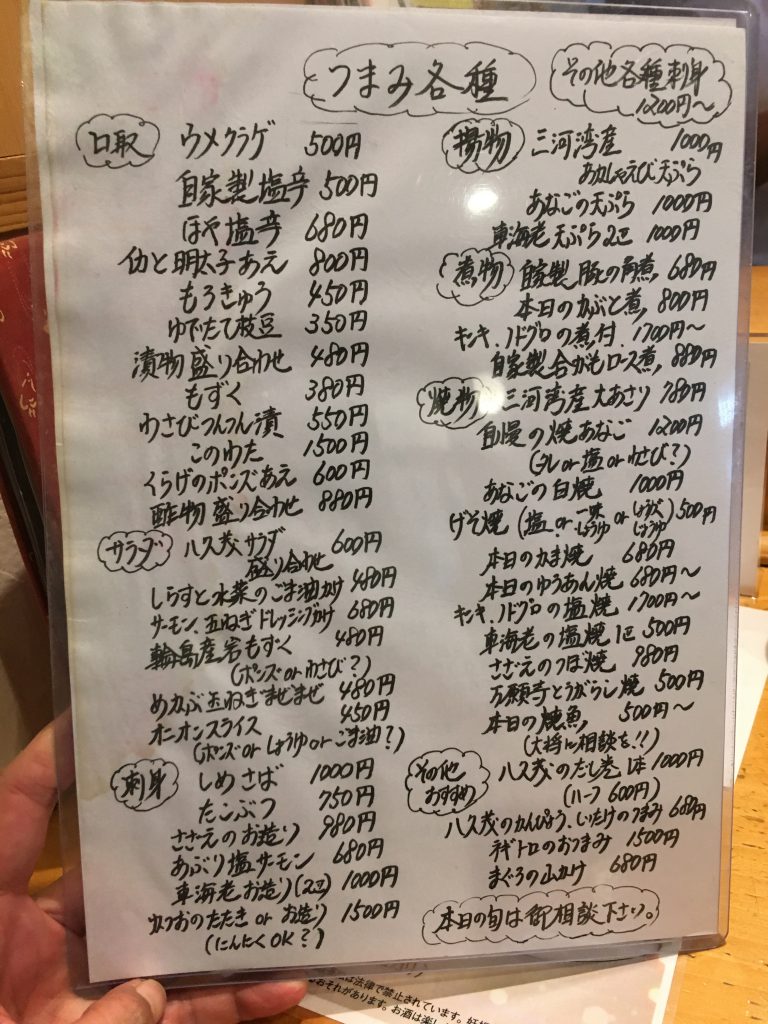 つまみ各種
その他各種刺身
1200円〜
口取 ウメクラゲ 500円
自家製塩辛 500円
ほや塩辛 680円
イカと明太子あえ 800円
もろきゅう 450円
ゆでたて枝豆 350円
漬物盛り合わせ 480円
もずく 380円
わさびつんつん漬 550円
このわた 1500円
くらげのポンズあえ 600円
酢物盛り合わせ 880円
サラダ 八久茂サラダ 600円
盛り合わせ
しらすと水菜のごま油かけ 480円
サーモン、玉ねぎドレッシングかけ 680円
輪島産岩もずく 480円
(ポンズorわさび?)
めかぶ玉ねぎまぜまぜ 480円
オニオンスライス 450円
(ポンズorしょうゆorごま油?)
刺身 しめさば 1000円
たこぶつ 750円
さざえのお造り 980円
あぶり塩サーモン 680円
車海老お造り(2コ) 1000円
かつおのたたき or お造り 1500円
(にんにくOK?)
揚物 三河湾産 1000円
あかしゃえび天ぷら
あなごの天ぷら 1000円
車海老天ぷら2コ 1000円
煮物 自家製豚の角煮 680円
本日のかぶと煮 800円
キンキ、ノドグロの煮付 1700円〜
自家製合がもロース煮 880円
焼物 三河湾産大あさり 780円
自慢の焼あなご 1200円
(タレor塩orわさび?)
あなごの白焼 1000円
げそ焼(塩or一味しょうゆorしょうがしょうゆ)500円
本日のかま焼 680円
本日のゆうあん焼 680円〜
キンキ、ノドグロの塩焼 1700円〜
車海老の塩焼1コ 500円
さざえのつぼ焼 980円
万願寺とうがらし焼 500円
本日の焼魚 500円〜
(大将に相談を!!)
その他おすすめ 八久茂のだし巻1本1000円
(ハーフ600円)
八久茂のかんぴょう、しいたけのつまみ 680円
ネギトロのおつまみ 1500円
まぐろの山かけ 680円
本日の旬は御相談下さい。
は法律で禁止されています。妊
おそれがあります。お酒は楽し